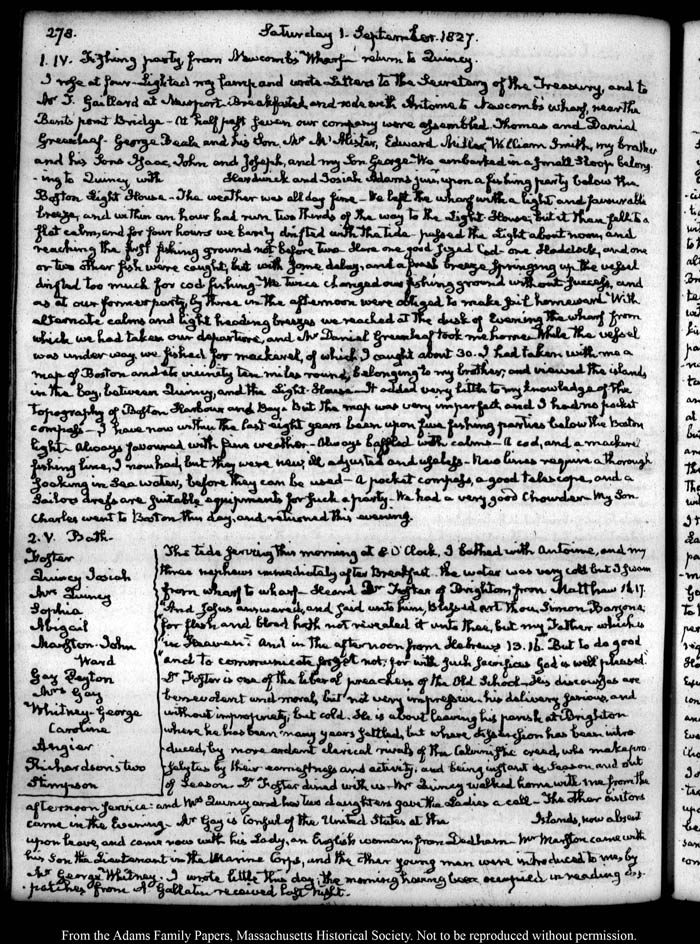 278.
Saturday 1. September. 1827.
1. IV. Fishing party, from Newcomb's Wharf — return to Quincy.
I rose at four — Lighted my lamp and wrote Letters to the Secretary of the Treasury, and to
Mr T. Gaillard at Newport — Breakfasted and rode with Antoine to Newcomb's wharf, near the
Bents point Bridge — At half past seven our company were assembled. Thomas and Daniel
Greenleaf — George Beale and his Son, Mr McAlister, Edward Miller, William Smith, my brother
and his Sons Isaac, John and Joseph, and my Son George — We embarked in a small Sloop belong-
-ing to Quincy with Hardwick and Josiah Adams junr. upon a fishing party below the
Boston Light House — The weather was all day fine — We left the wharf with a light and favourable
breeze, and within an hour had run two thirds of the way to the Light-House; but it then fell to a
flat calm, and for four hours we barely drifted with the tide — passed the Light about noon, and
reaching the first fishing ground not before two. Here one good sized Cod — one Haddock, and one
or two other fish were caught, but with some delay, and a fresh breeze springing up the vessel
drifted too much for cod fishing — We twice changed our fishing ground without success, and
as at our former party, by three in the afternoon were obliged to make sail homeward. With
alternate calms and light heading breezes we reached at the dusk of evening the wharf from
which we had taken our departure, and Mr Daniel Greenleaf took me home. While the vessel
was under way we fished for mackerel, of which I caught about 30. I had taken with me a
map of Boston and its vicinity ten miles round, belonging to my brother, and viewed the islands
in the bay, between Quincy, and the Light-House — It added very little to my knowledge of the
topography of Boston Harbour and Bay — But the map was very imperfect and I had no pocket
compass — I have now within the last eight years been upon five fishing parties below the Boston
Light — Always favoured with fine weather — Always baffled with calms — A cod, and a mackerel
fishing line, I now had, but they were new, ill adjusted and useless — New lines require a thorough
soaking in Sea water, before they can be used — A pocket compass, a good telescope, and a
Sailors dress are suitable equipments for such a party — We had a very good Chowder — My Son
Charles went to Boston this day, and returned this evening.
2. V. Bath.
Foster
Quincy Josiah
Mrs Quincy
Sophia
Abigail
Marston. John
Ward
Gay Peyton
Mrs Gay
Whitney — George
Caroline
Angier
Richardson's two
Stimpson
The tide serving this morning at 8 O'Clock, I bathed with Antoine, and my
three nephews immediately after Breakfast. The water was very cold but I swam
from wharf to wharf — Heard Dr Foster of Brighton from Matthew 16.17.
"And Jesus answered, and said unto him, Blessed art thou, Simon Barjona
for flesh and blood hath not revealed it unto thee, but my Father which is
in Heaven": And in the afternoon from Hebrews 13.16. But to do good
"and to communicate forget not; for with such sacrifices God is well pleased"
Dr Foster is one of the liberal preachers of the Old School — His discourses are
benevolent and moral, but not very impressive — his delivery serious, and
without impropriety, but cold. He is about leaving his parish at Brighton
where he has been many years settled, but where dissension has been intro-
duced, by more ardent clerical rivals of the Calvinistic creed, who make pro-
selytes by their earnestness and activity; and being instant in Season, and out
of Season. Dr Foster dined with us — Mr Quincy walked home with me from the
afternoon service: and Mrs Quincy and his two daughters gave the Ladies a call — The other visitors
came in the Evening. Mr Gay is Consul of the United States at the Islands, now absent
upon leave, and came now with his Lady, an English woman from Dedham — Mr Marston came with
his Son the Lieutenant in the Marine Corps, and the other young men were introduced to me, by
Mr George Whitney. I wrote little this day; the morning having been occupied in reading dis-
-patches from A. Gallatin received last Night.
From the Adams Family Papers, Massachusetts Historical Society. Not to be reproduced without permission.